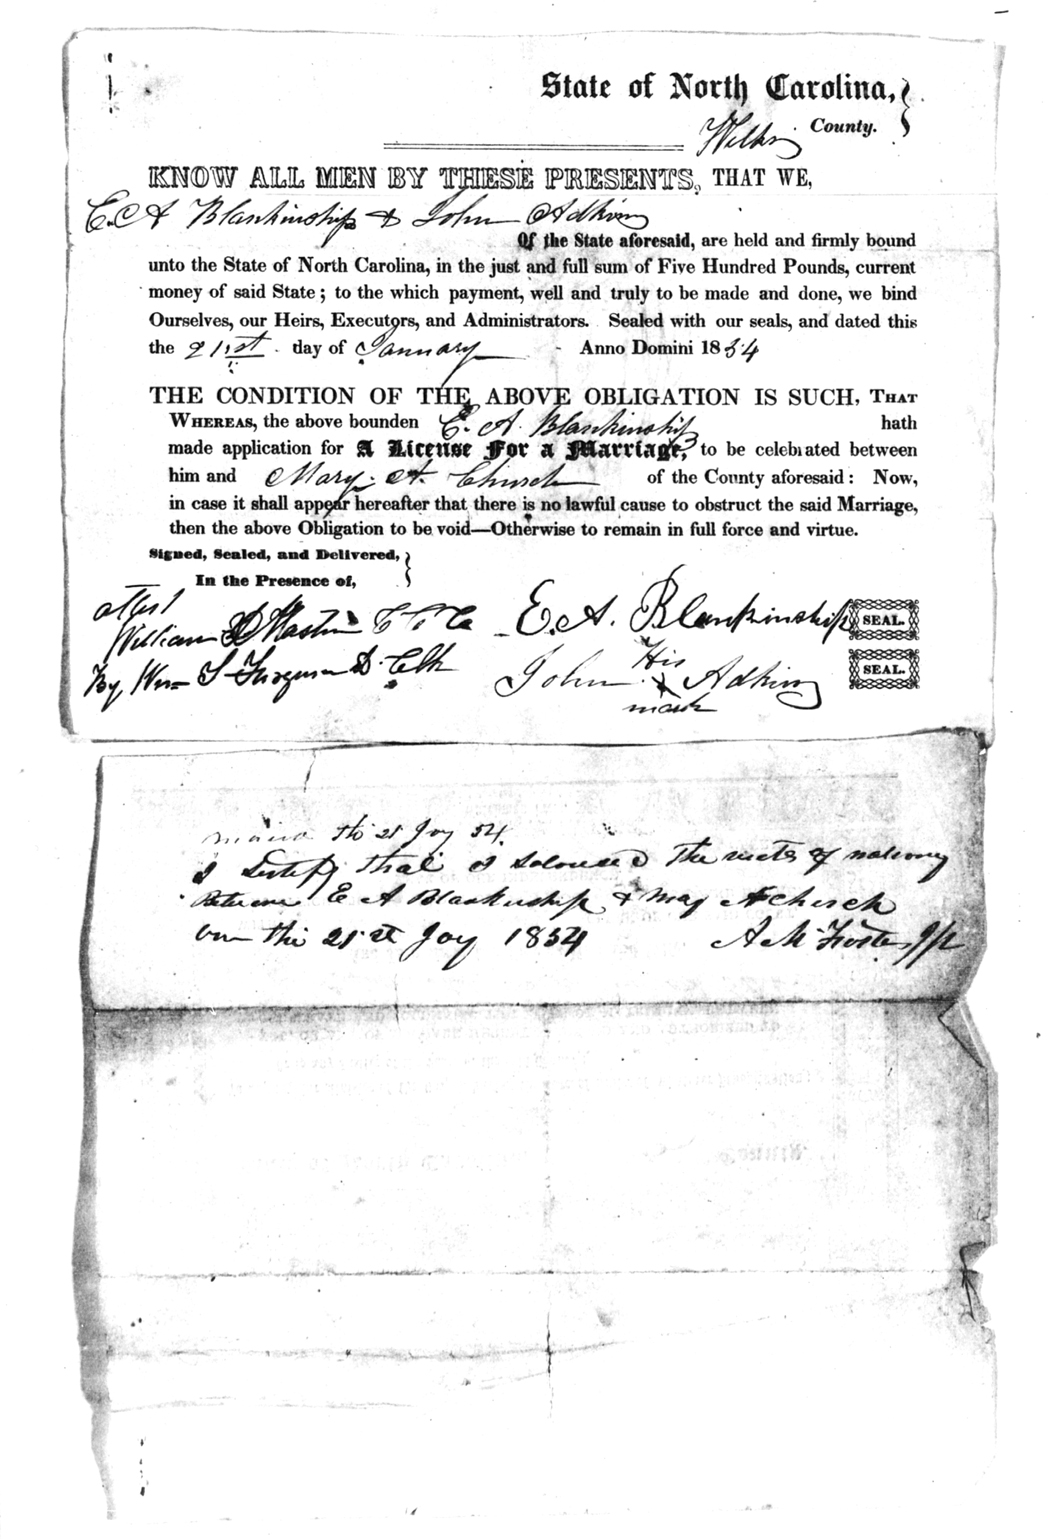 State of North Carolina,
Wilkes County.
KNOW ALL MEN BY THESE PRESENTS, THAT WE,
E. A Blankinship & John Adkins
Of the State aforesaid, are held and firmly bound
unto the State of North Carolina, in the just and full sum of Five Hundred Pounds, current
money of said State; to the which payment, well and truly to be made and done, we bind
Ourselves, our Heirs, Executors, and Administrators. Sealed with our seals, and dated this
the 21st day of January Anno Domini 1854
THE CONDITION OF THE ABOVE OBLIGATION IS SUCH, THAT
WHEREAS, the above bounden E. A. Blankinship hath
made application for A License For a Marriage, to be celebrated between
him and Mary A. Church of the County aforesaid: Now,
in case it shall appear hereafter that there is no lawful cause to obstruct the said Marriage,
then the above Obligation to be void—Otherwise to remain in full force and virtue.
Signed, Sealed, and Delivered,
In the Presence of,
attest
William Mastin E. A. Blankinship SEAL.
By, Wm S Furguson D. Clk John His X mark Adkins SEAL.
the 21 Jay 54.
I Sertify that I the of
Between E A Blankuship & May A church
on the 21st Jay 1854 A M Foster J P